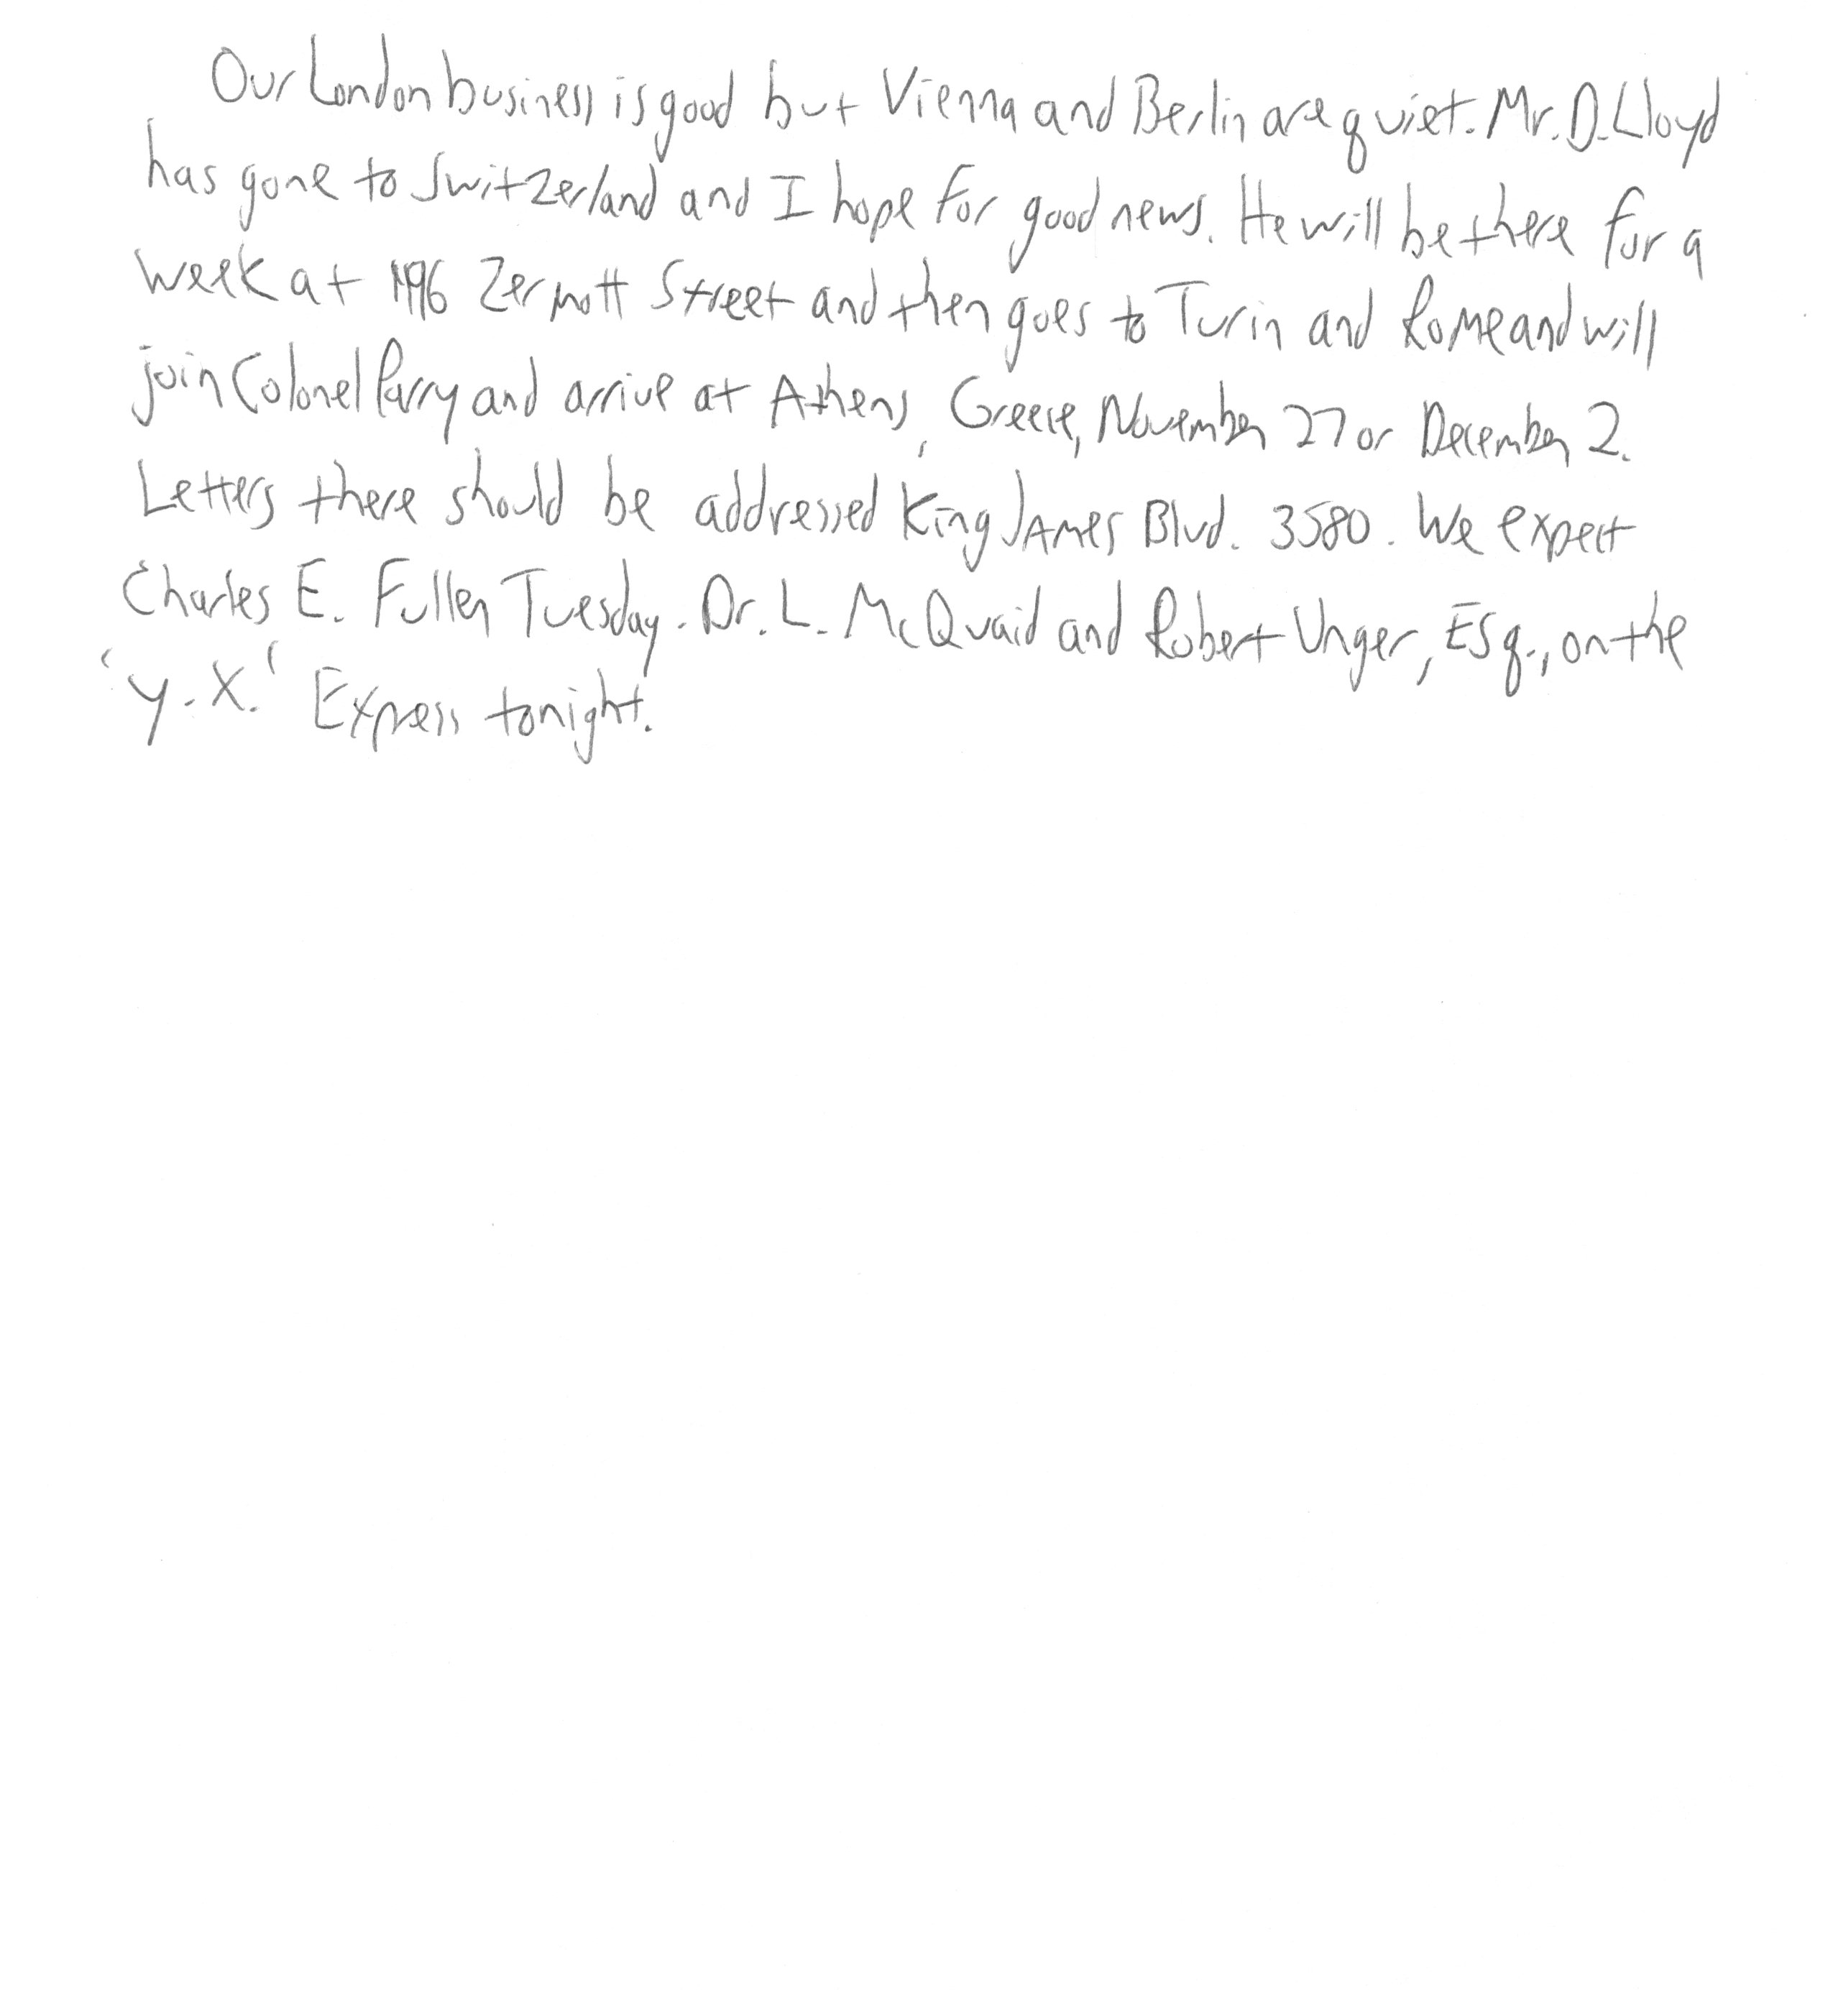 Our London business is good but Vienna and Berlin are quiet. Mr. D. Lloyd
has gone to Switzerland and I hope for good news. He will be there for a
week at 1496 Zermott Street and then goes to Turin and Rome and will
join Colonel Parry and arrive at Athens, Greece, November 27 or December 2.
Letters there should be addressed King James Blvd. 3580. We expect
Charles E. Fuller Tuesday. Dr. L. McQuaid and Robert Unger, Esq., on the
'Y.X.' Express tonight.